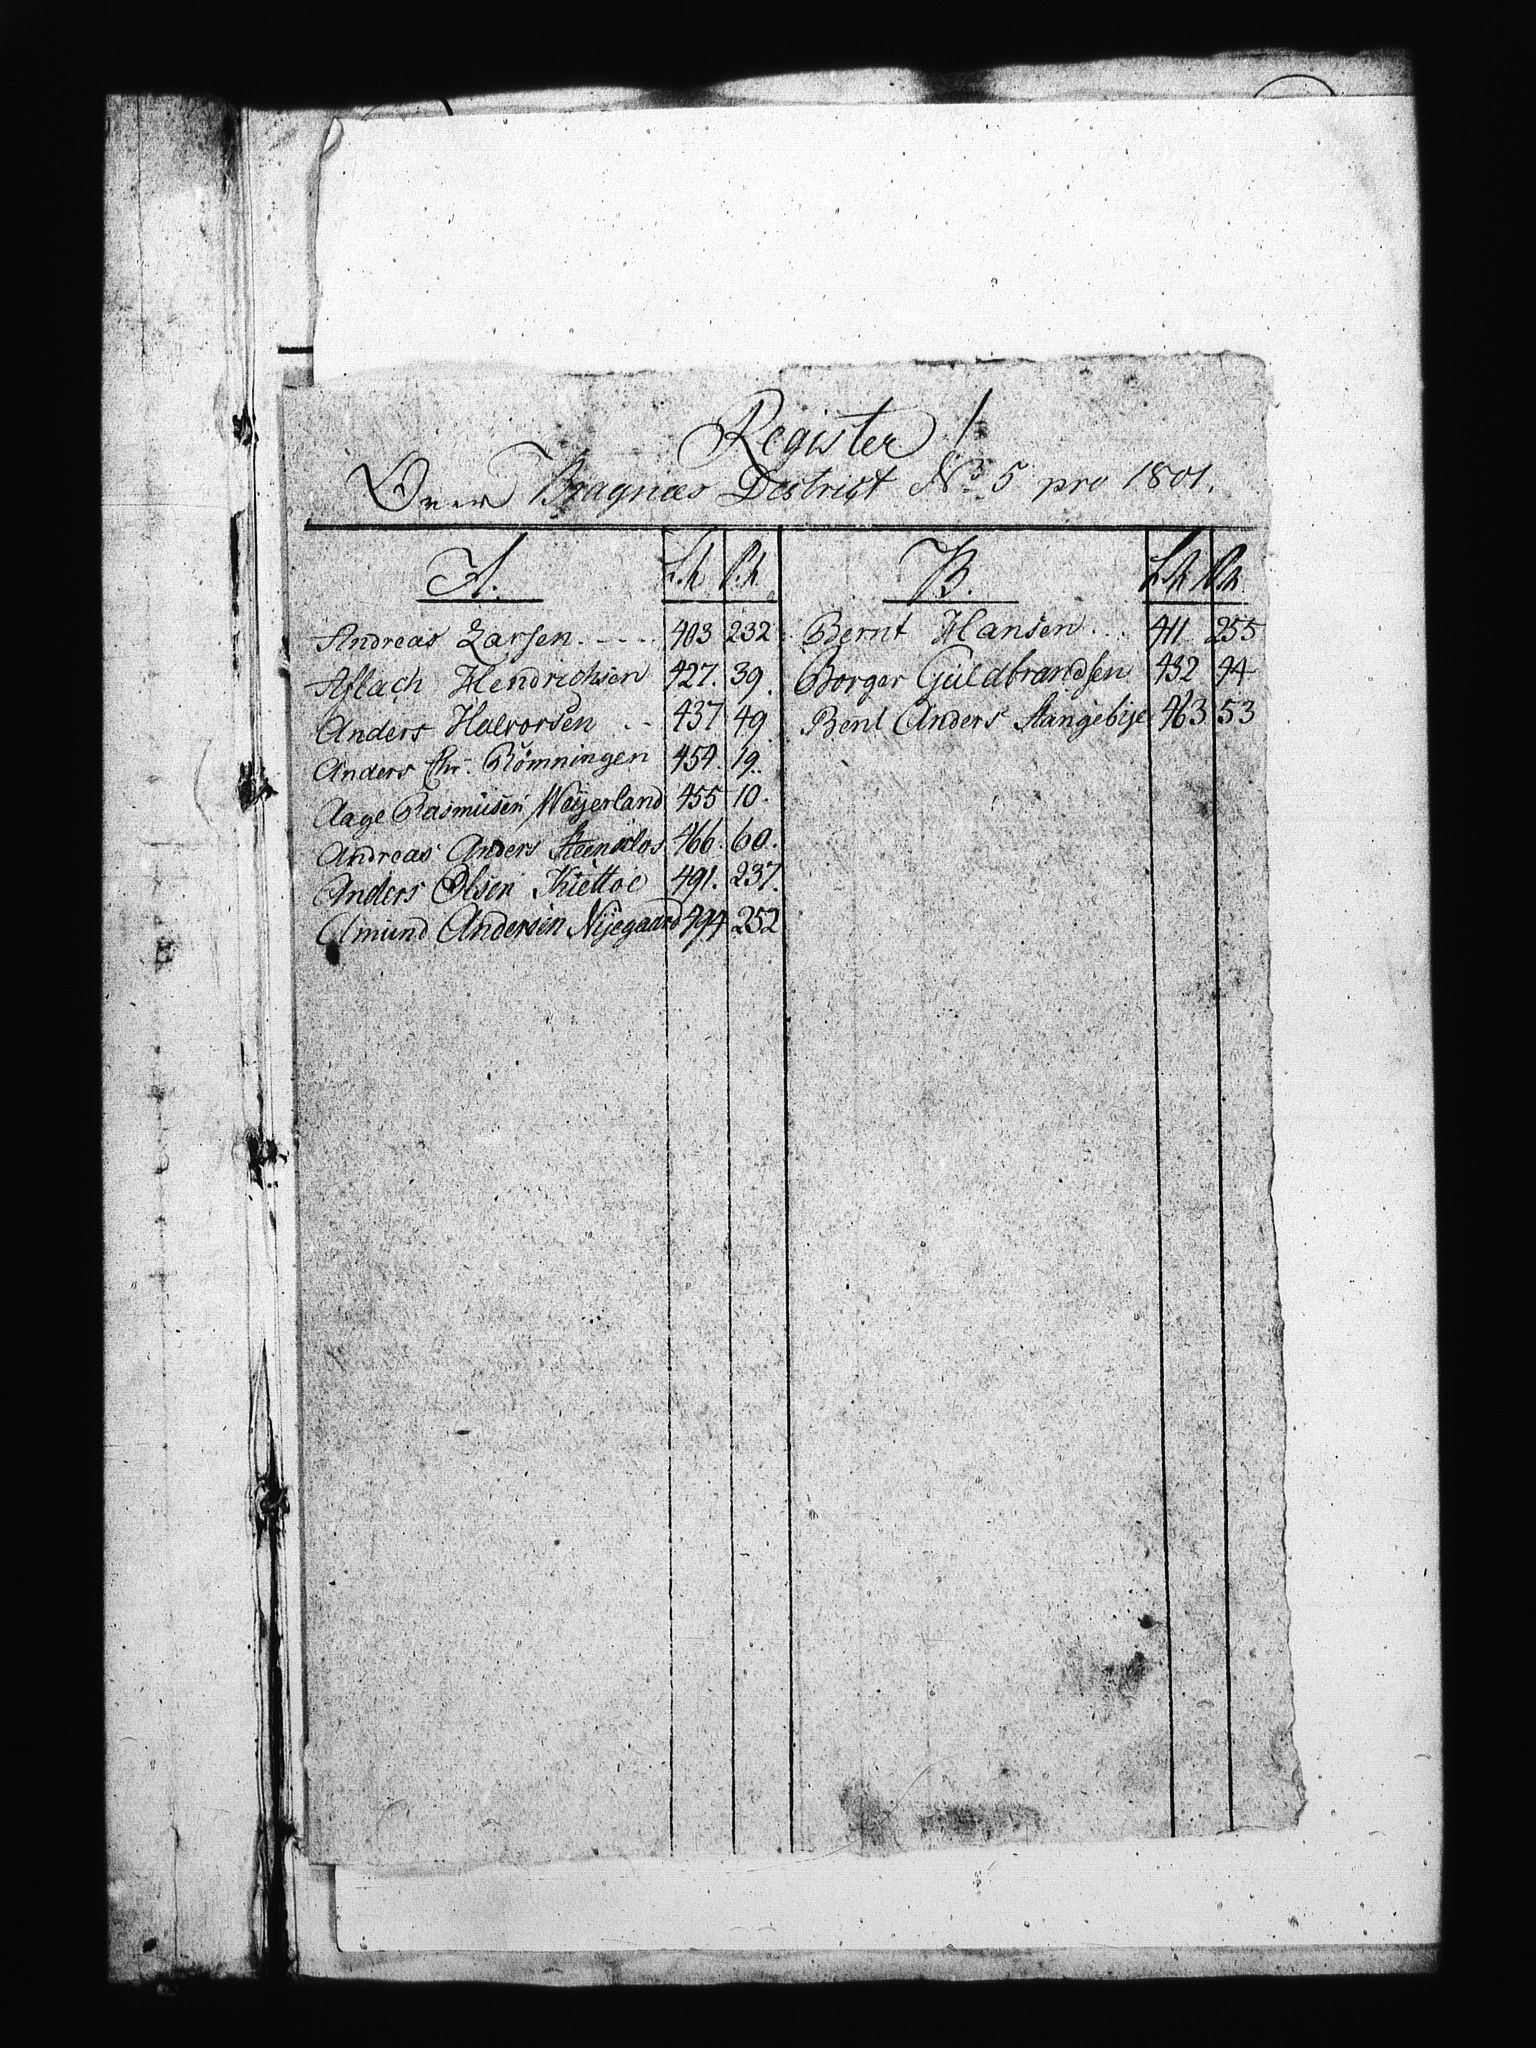 Register
Over Bragnæs District No. 5 pro 1801.
A.
Andreas Larsen 403 232
Aslach Hendrichsen 427. 39
Anders Halvorsen 437 49
Anders Chr. Römningen 454. 19
Aage Rasmusen 455 10.
Andreas Anders 466. 60.
Anders Olsen 491. 237.
Amund Andersen Nijegaard 494 252
B.
Bernt Hansen 411 255
Borger Guldbrandsen 432 44
Bent Anders Stangebije 463 53